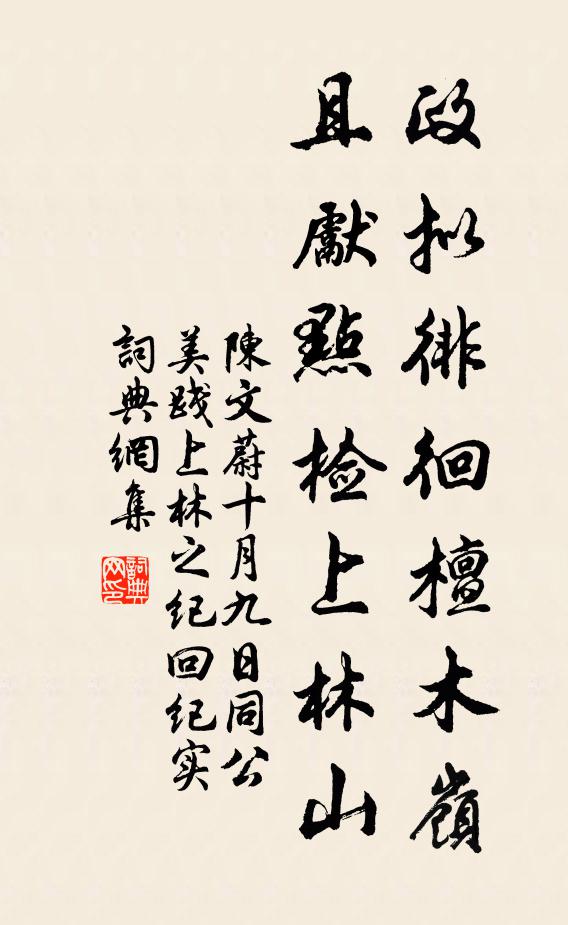 政拟徘徊檀木嶺
且獻點检上林山
陳文蔚十月九日同公
美践上林之纪回纪实
詞典網集
詞典
网印